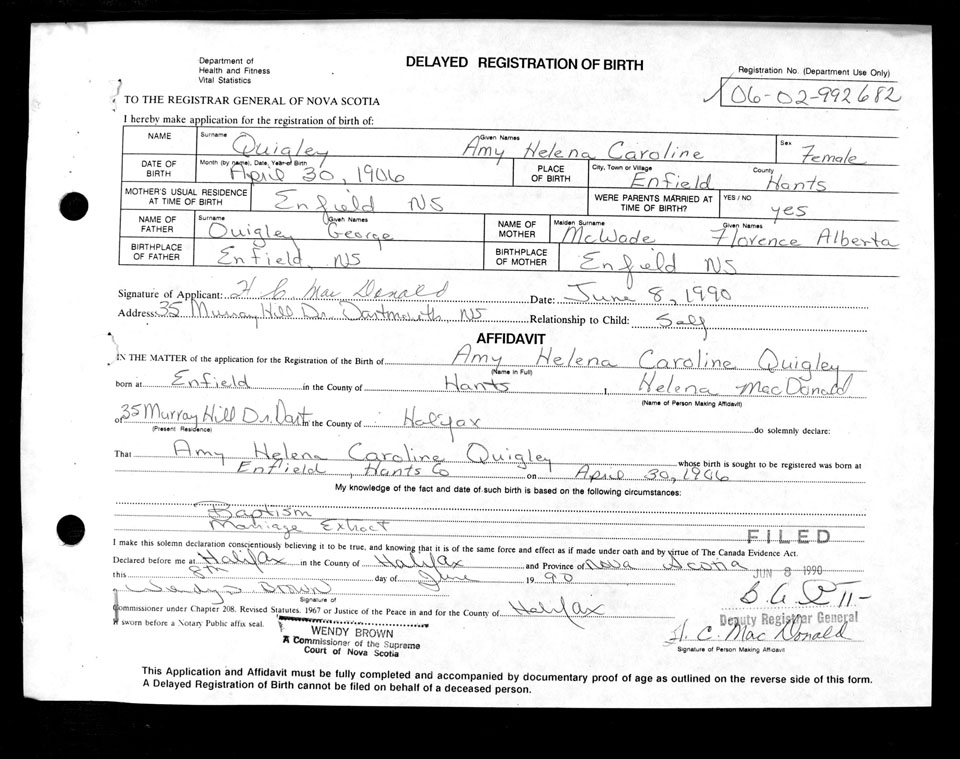 Department of
Health and Fitness
Vital Statistics
DELAYED REGISTRATION OF BIRTH
Registration No. (Department Use Only)
06-02-992682
TO THE REGISTRAR GENERAL OF NOVA SCOTIA
I hereby make application for the registration of birth of:
NAME Surname Quigley Given Names Amy Helena Caroline Sex Female
DATE OF BIRTH Month (by name), Date, Year of Birth April 30, 1906 PLACE OF BIRTH City, Town or Village Enfield County Hants
MOTHER'S USUAL RESIDENCE AT TIME OF BIRTH Enfield NS WERE PARENTS MARRIED AT TIME OF BIRTH? YES / NO yes
NAME OF FATHER Surname Quigley Given Names George NAME OF MOTHER Maiden Surname McWade Given Names Florence Alberta
BIRTHPLACE OF FATHER Enfield, NS BIRTHPLACE OF MOTHER Enfield NS
Signature of Applicant: H C MacDonald Date: June 8, 1990
Address: 35 Murray Hill Dr. Dartmouth NS Relationship to Child: Self
AFFIDAVIT
IN THE MATTER of the application for the Registration of the Birth of Amy Helena Caroline Quigley
(Name in Full)
born at Enfield in the County of Hants I, Helena MacDonald
(Name of Person Making Affidavit)
of 35 Murray Hill Dr. Dart in the County of Halifax do solemnly declare:
(Present Residence)
That Amy Helena Caroline Quigley whose birth is sought to be registered was born at
Enfield, Hants Co on April 30, 1906
My knowledge of the fact and date of such birth is based on the following circumstances:
Baptism
Marriage Extract
FILED
I make this solemn declaration conscientiously believing it to be true, and knowing that it is of the same force and effect as if made under oath and by virtue of The Canada Evidence Act.
Declared before me at Halifax in the County of Halifax and Province of Nova Scotia
this 8th day of June 1990
JUN 8 1990
Wendy J. Brown
Signature of
Commissioner under Chapter 208. Revised Statutes. 1967 or Justice of the Peace in and for the County of Halifax
If sworn before a Notary Public affix seal.
WENDY BROWN
A Commissioner of the Supreme
Court of Nova Scotia
Deputy Registrar General
H. C. MacDonald
Signature of Person Making Affidavit
This Application and Affidavit must be fully completed and accompanied by documentary proof of age as outlined on the reverse side of this form.
A Delayed Registration of Birth cannot be filed on behalf of a deceased person.